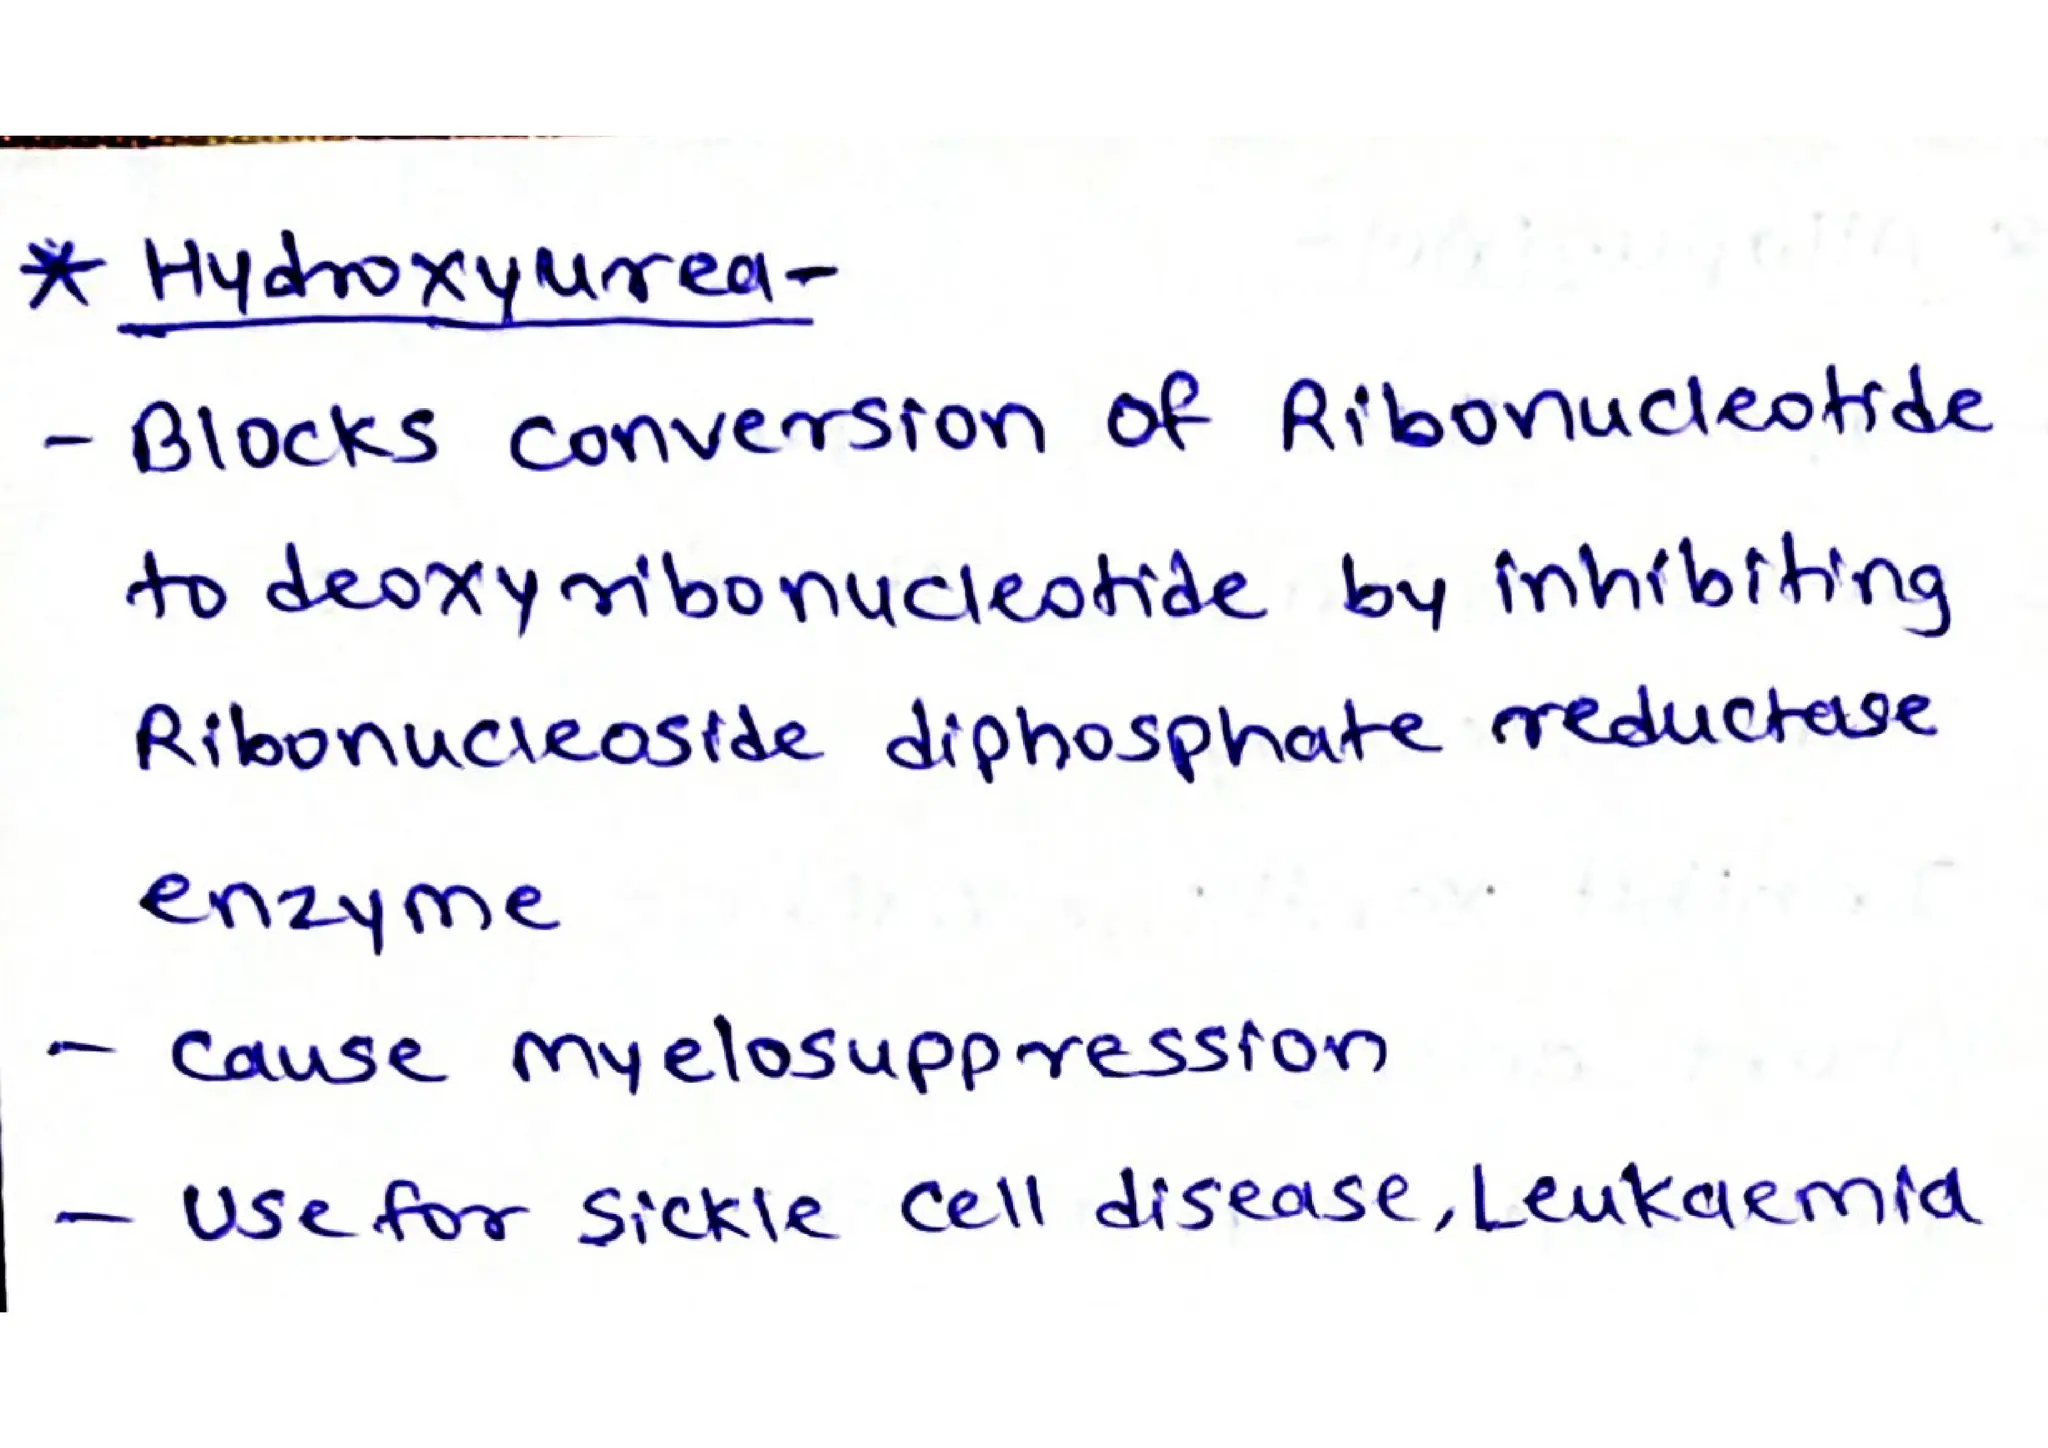 * Hydroxyurea-
- Blocks conversion of Ribonucleotide
to deoxyribonucleotide by inhibiting
Ribonucleoside diphosphate reductase
enzyme
- Cause myelosuppression
- Use for Sickle Cell disease, Leukaemia